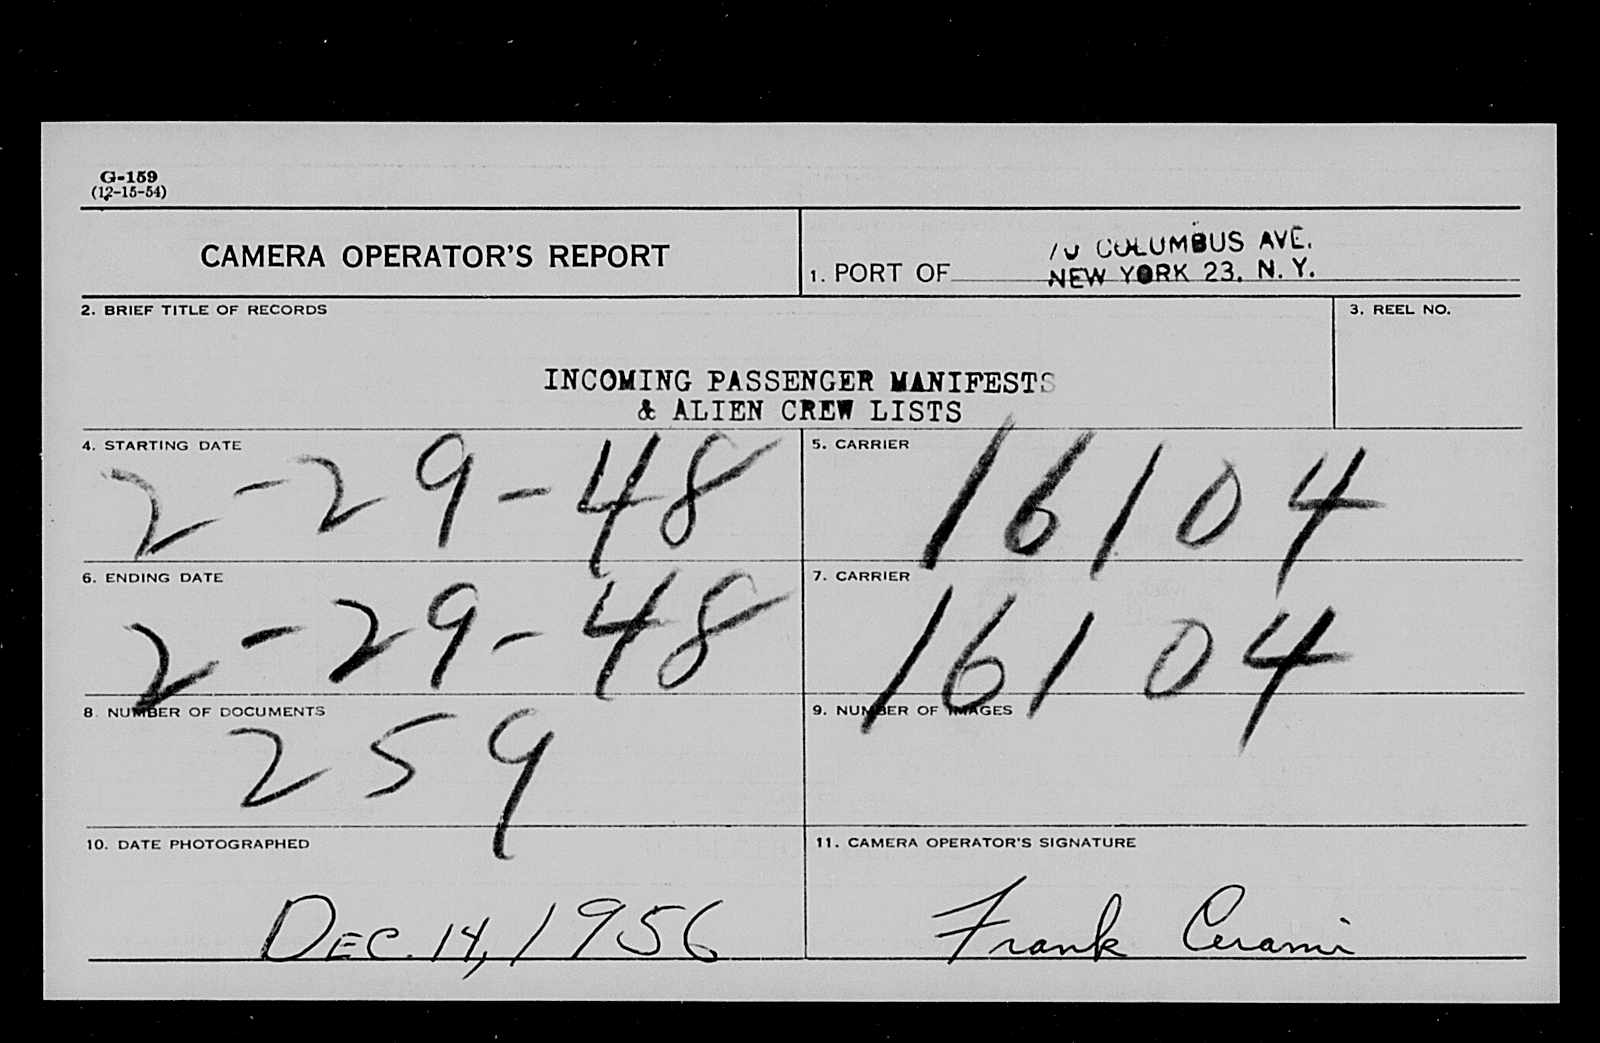 G-159
(12-15-54)
CAMERA OPERATOR'S REPORT
1. PORT OF
70 COLUMBUS AVE.
NEW YORK 23, N. Y.
2. BRIEF TITLE OF RECORDS
3. REEL NO.
INCOMING PASSENGER MANIFESTS
& ALIEN CREW LISTS
4. STARTING DATE
2-29-48
5. CARRIER
16104
6. ENDING DATE
2-29-48
7. CARRIER
16104
8. NUMBER OF DOCUMENTS
259
9. NUMBER OF IMAGES
10. DATE PHOTOGRAPHED
DEC. 14, 1956
11. CAMERA OPERATOR'S SIGNATURE
Frank Cerami